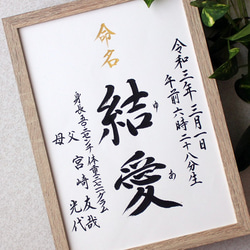 命名
令和三年三月一日
午前六時二十八分生
結愛
ゆ
あ
父 宮崎 友哉
母 光代